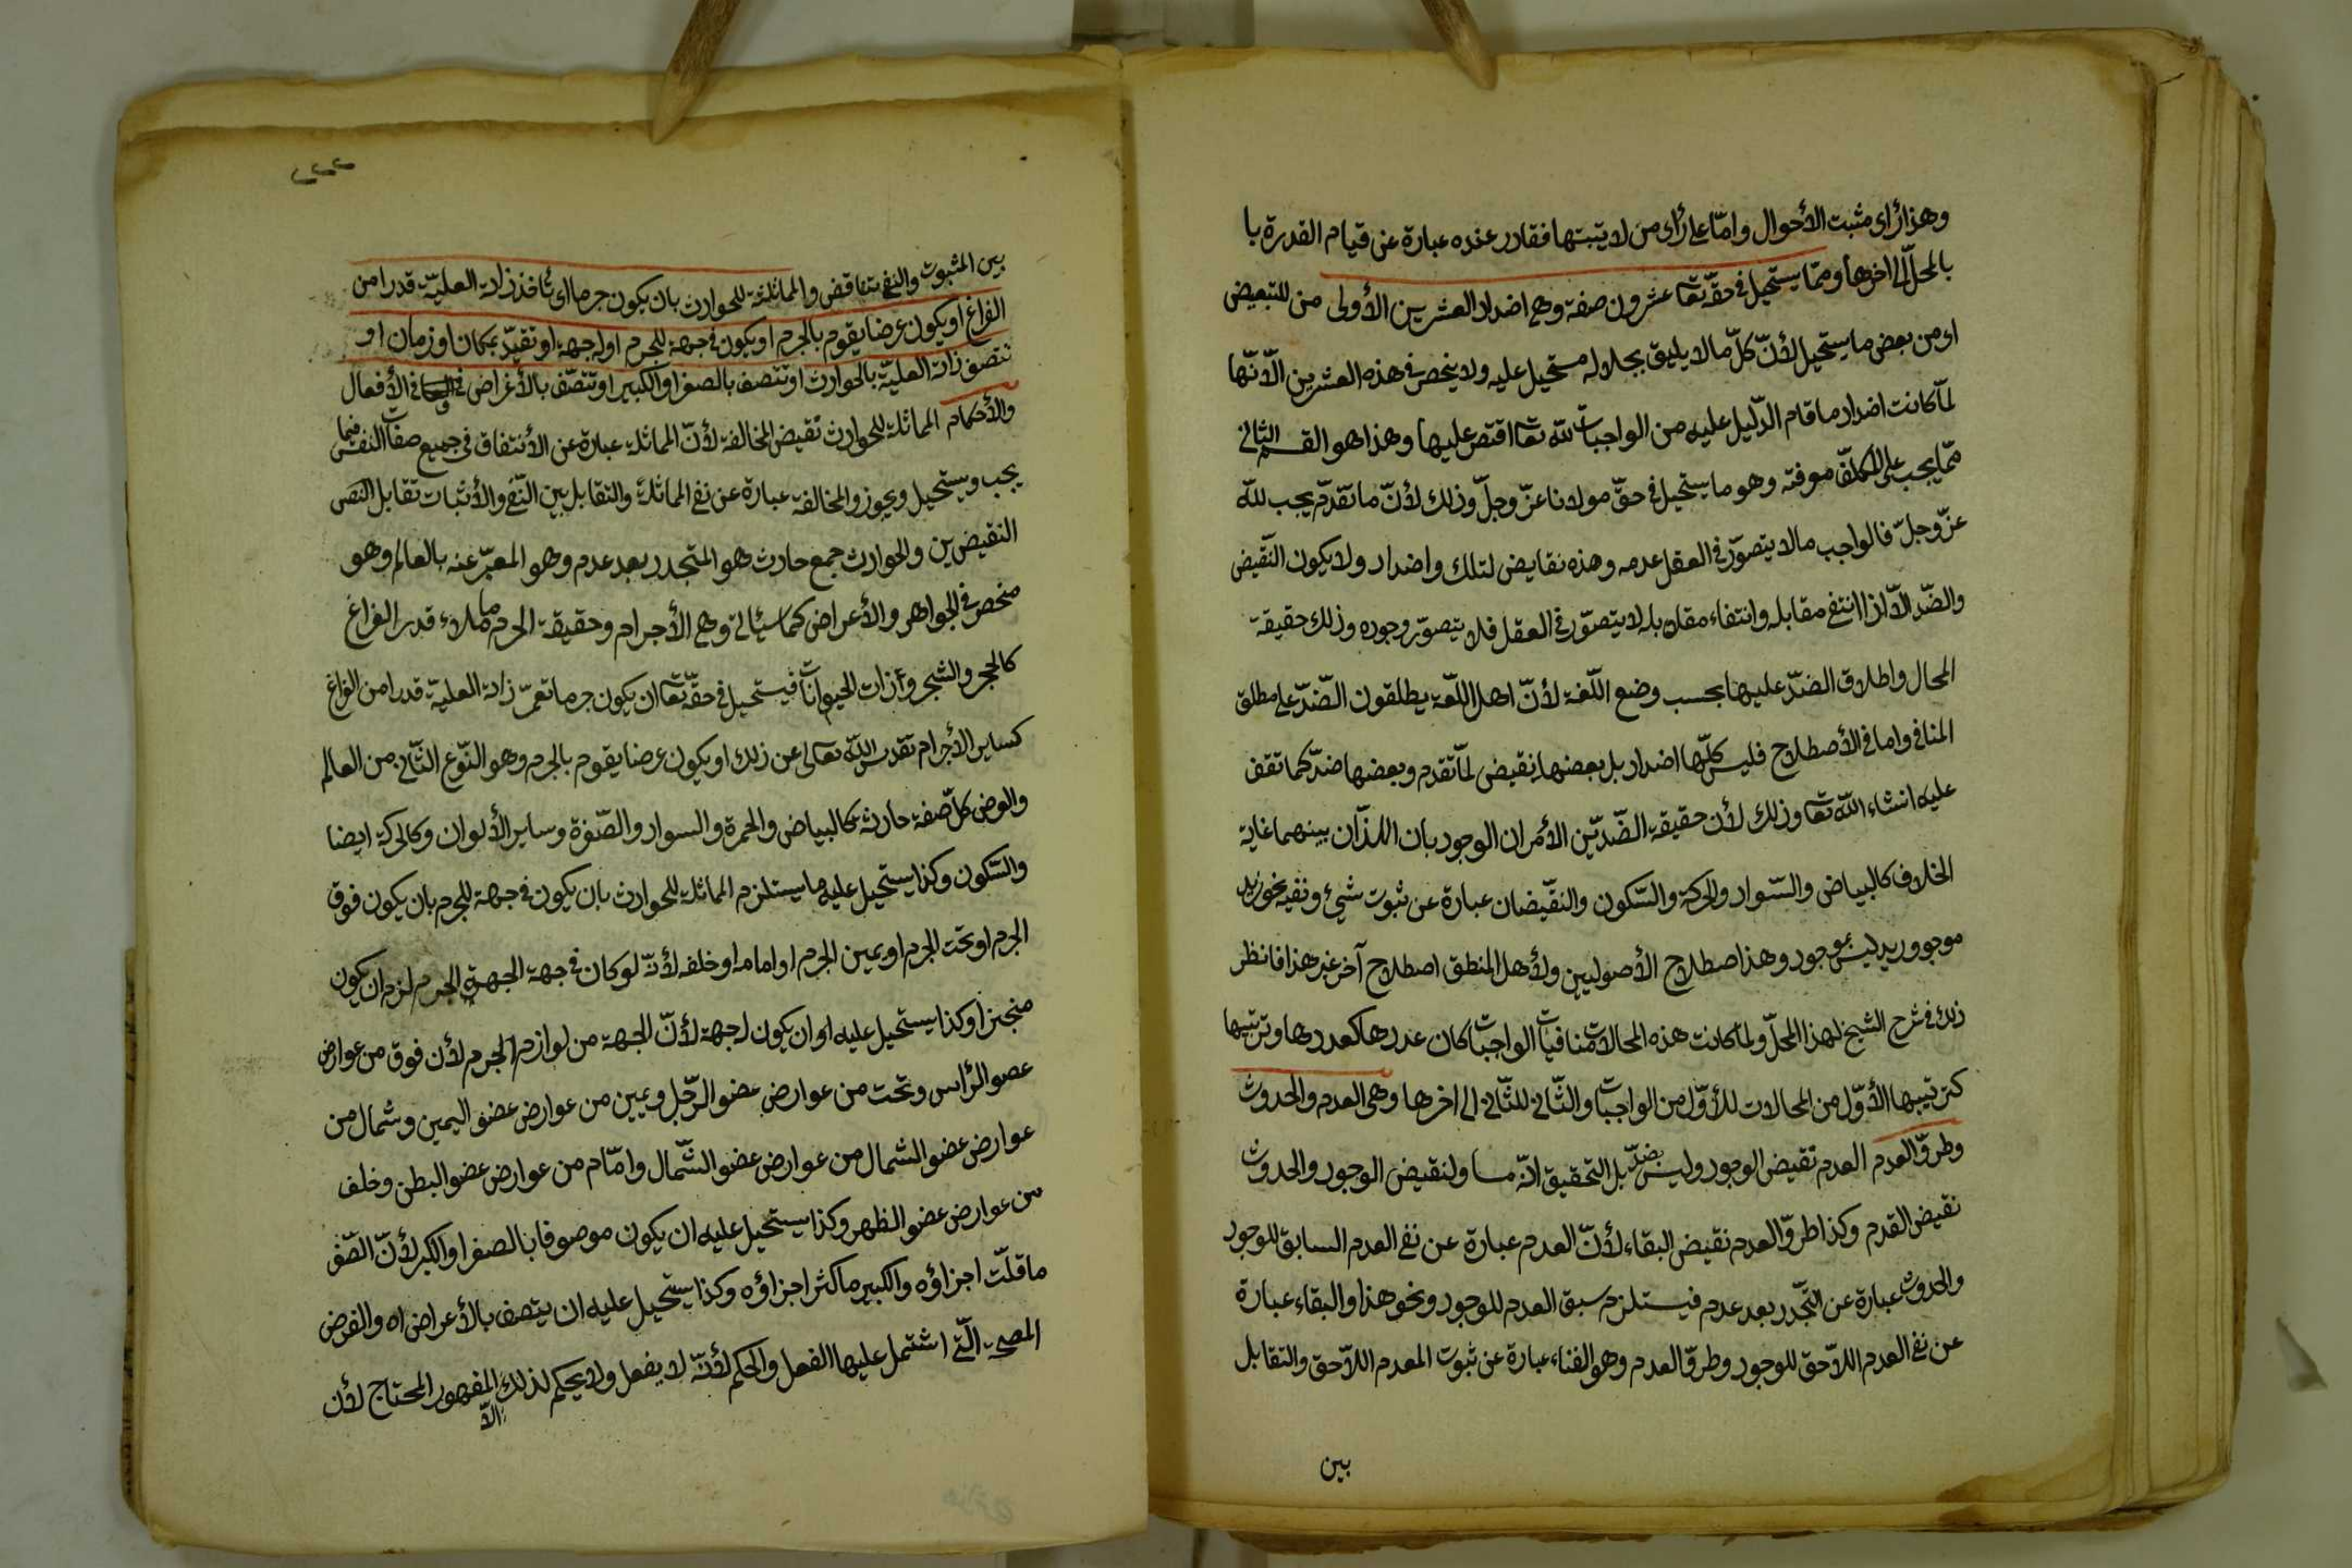 وهذا رأى مثبت الأحوال وامّا على رأى من لا يتبتها فقادر عنده عبارة عن قيام القدرة با
بالمحلّ الى اخرها وممّا يستحيل فى حقّه تعا عشرون صفة وهى اضداد العشرين الأولى من للتبعيض
او من بعض ما يستحيل لأنّ كلّ ما لا يليق بجلاله مستحيل عليه ولا ينحصر فى هذه العشرين الّا انّها
لمّا كانت اضداد ما قام الدّليل عليه من الواجبات لله تعا اقتصر عليها وهذا هو القسم الثانى
ممّا يجب على المكلّف معرفته وهو ما يستحيل فى حقّ مولانا عزّ وجلّ وذلك لأنّ ما تقدّم يجب للّه
عزّ وجلّ فالواجب ما لا يتصوّر فى العقل عدمه وهذه نقايض لتلك واضداد ولا يكون النّقيض
والضّد الّا اذا انتفى مقابله وانتفاء مقابله لا يتصوّر فى العقل فلا يتصوّر وجوده وذلك حقيقة
المحال واطلاق الضدّ عليها بحسب وضع اللّغة لأنّ اهل اللّغة يطلقون الضّدّ على مطلق
المنافى واما فى الأصطلاح فليس كلّها اضداد بل بعضها نقيض لمّا تقدم وبعضها ضدّ كما تقف
عليه انشاء الله تعا وذلك لأن حقيقة الضّدّين الأمران الوجوديان اللذان بينهما غاية
الخلاف كالبياض والسّواد والحركة والسّكون والنقّيضان عبارة عن ثبوت شيئ ونفيه نحو زيد
موجود وزيد ليس بموجود وهذا اصطلاح الأصوليين ولأهل المنطق اصطلاح آخر غير هذا فانظر
ذلك فى شرح الشيخ لهذا المحلّ ولمّا كانت هذه المحالات منافيات الواجبات كان عددها كعددها وترتيبها
كترتيبها الأوّل من المحالات للأوّل من الواجبات والثّانى للثّانى الى اخرها وهى العدم والحدوث
وطروّ العدم العدم نقيض الوجود وليس بضدّ بل التحقيق انّه مساو لنقيض الوجود والحدوث
نقيض القدم وكذا طروّ العدم نقيض البقاء لأنّ العدم عبارة عن نفى العدم السابق للوجود
والحدوث عبارة عن التّجدد بعد عدم فيستلزم سبق العدم للوجود ونحو هذا والبقاء عبارة
عن نفى العدم اللاّحق للوجود وطروّ العدم وهو الفناء عبارة عن ثبوت العدم اللاّحق والتقابل
بين
٦٤٤
بين المثبوت والنفى تناقض والمماثلة للحوادث بان يكون جرما اى تأخذ ذاته العليّة قدرا من
الفراغ او يكون عرضا يقوم بالجرم او يكون فى جهة للجرم او له جهة او تقيّد بمكان او زمان او
تتصف ذاته العليّة بالحوادث او تتصف بالصغر او الكبير او تتصّف بالأغراض فى الأفعال
والأحكام المماثلة للحوادث نقيض المخالفة لأنّ المماثلة عبارة عن الأتفاق فى جميع صفات النفس فيما
يجب ويستحيل ويجوز والمخالفة عبارة عن نفى المماثلة والتقابل بين النّفى والأثبات تقابل النص
النقيضين والحوادث جمع حادث هو المتجدد بعد عدم وهو المعبّر عنه بالعالم وهو
منحصر فى الجواهر والأعراض كما سيأتى وهى الأجرام وحقيقة الجرم ما ملاء قدر الفراغ
كالحجر والشجر وذات الحيوانات فيستحيل فى حقّه تعا ان يكون جرما تعمّر ذاته العليّة قدرا من الفراغ
كساير الأجرام تقدس الله تعالى عن ذلك او يكون عرضا يقوم بالجرم وهو النّوع الثّانى من العالم
والعرض كلّ صفة حادثة كالبياض والحمرة والسواد والصّفرة وساير الألوان وكالحركة ايضا
والسّكون وكذا يستحيل عليه ما يستلزم المماثلة للحوادث بان يكون فى جهة للجرم بان يكون فوق
الجرم او تحت الجرم او يمين الجرم او امامه او خلفه لأنّه لو كان فى جهة الجهة الجرم لزم ان يكون
متحيزا وكذا يستحيل عليه او ان يكون له جهة لأنّ الجهة من لوازم الجرم لأن فوق من عوارض
عضو الرّأس وتحت من عوارض عضو الرّجل ويمين من عوارض عضو اليمين وشمال من
عوارض عضو الشمال من عوارض عضو الشّمال وامّام من عوارض عضو البطن وخلف
من عوارض عضو الظهر وكذا يستحيل عليه ان يكون موصوفا بالصغر او الكبر لأنّ الصّغر
ما قلّت اجزاؤه والكبير ما كثر اجزاؤه وكذا يستحيل عليه ان يتصف بالأعراض اه والغرض
المصلحة الّتى اشتمل عليها الفعل والحكم لأنّه لا يفعل ولا يحكم لذلك المقهور المحتاج لأن
الاّ